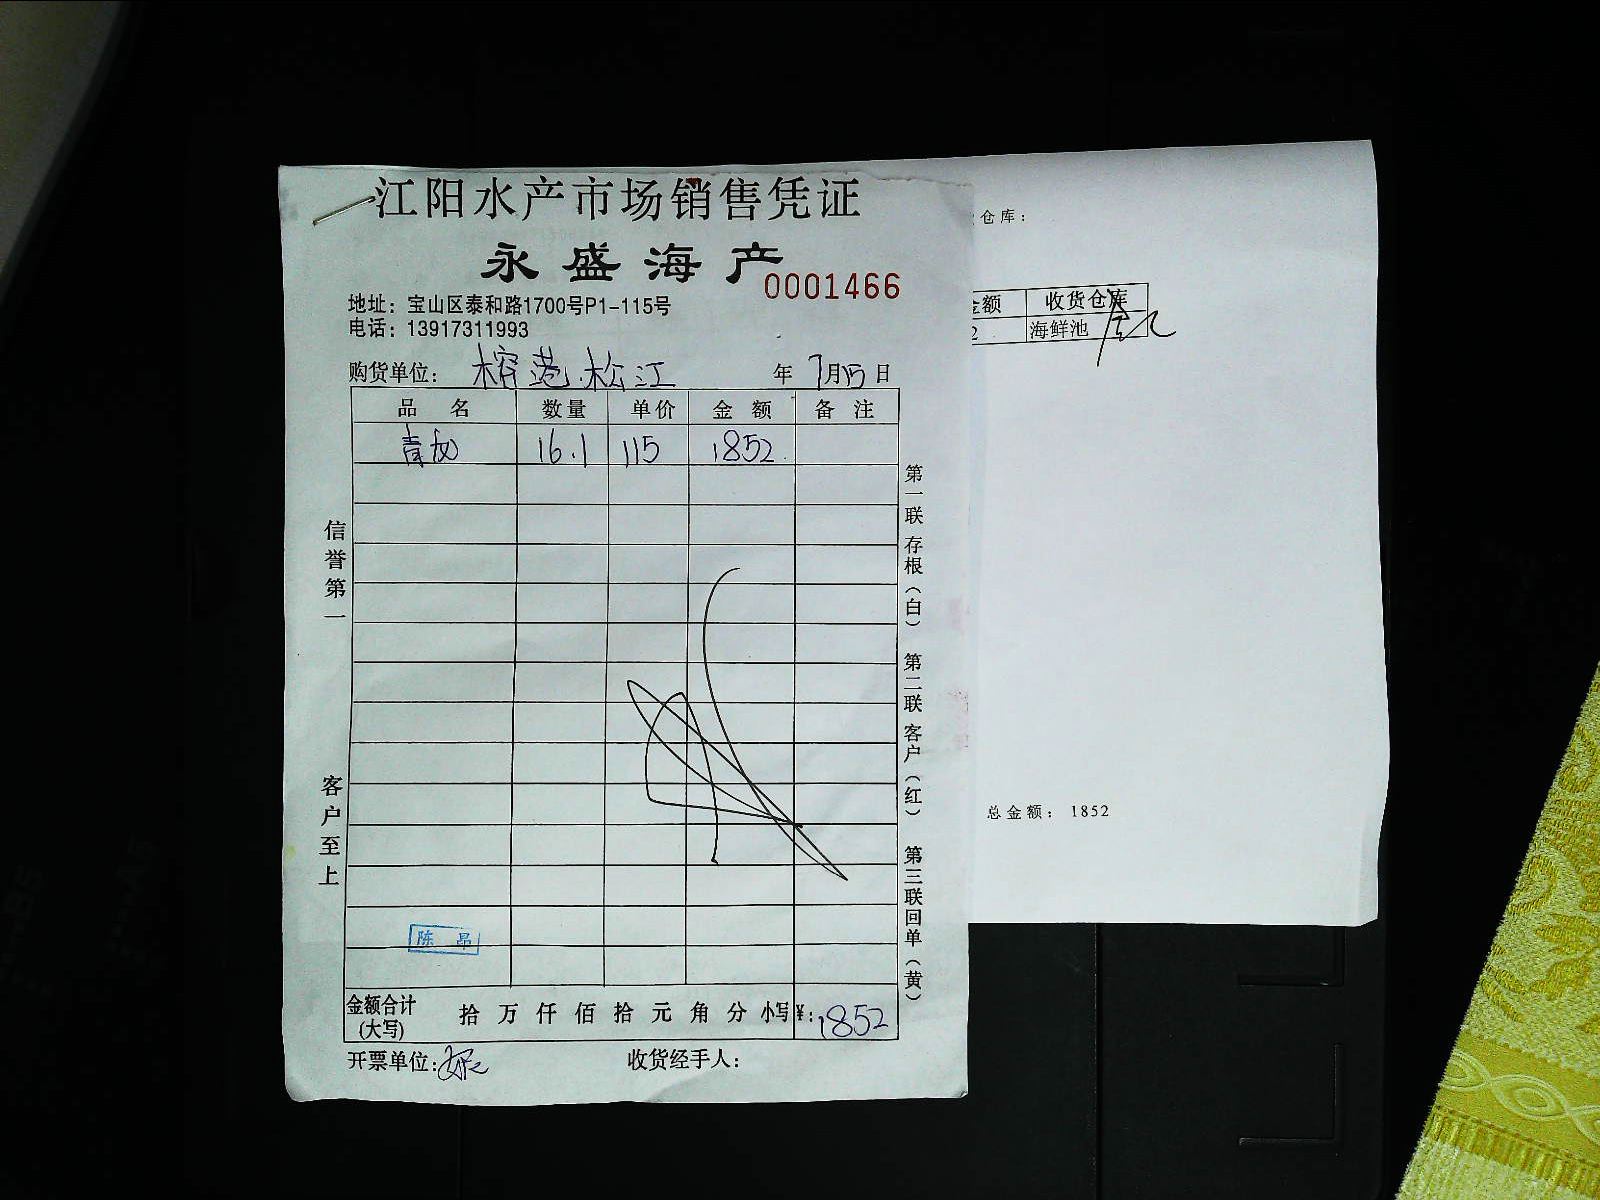 江阳水产市场销售凭证
永盛海产
0001466
地址：宝山区泰和路1700号P1-115号
电话：13917311993
购货单位：榕港.松江 年 7月15日
品名 数量 单价 金额 备注
青龙 16.1 115 1852.
信誉第一
客户至上
第一联 存根（白） 第二联 客户（红） 第三联回单（黄）
陈 昂
金额合计(大写) 拾 万 仟 佰 拾 元 角 分 小写¥：1852
开票单位： 收货经手人：
仓库：
金额 收货仓库
2 海鲜池
总金额： 1852